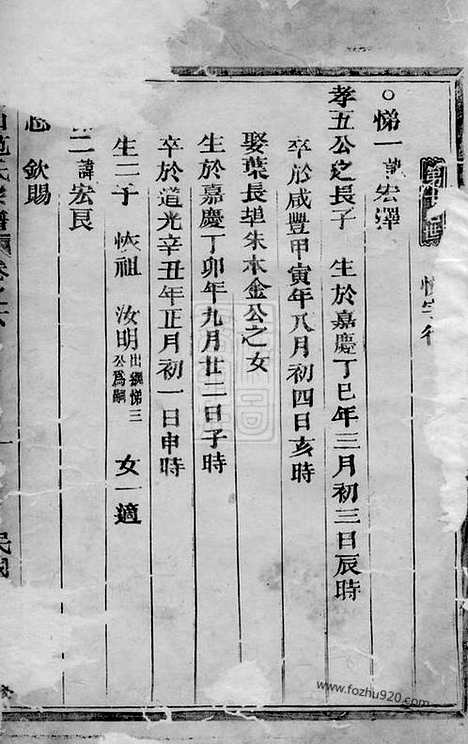 悌字行
○悌一諱宏澤
孝五公之長子 生於嘉慶丁巳年三月初三日辰時
卒於咸豐甲寅年八月初四日亥時
娶葉長埠朱木金公之女
生於嘉慶丁卯年九月廿二日子時
卒於道光辛丑年正月初一日申時
生二子 恢祖 汝明出繼悌三公爲嗣 女一適
二諱宏良
欽賜
氏宗譜 卷之 一 民國 修
www.fozhu920.com